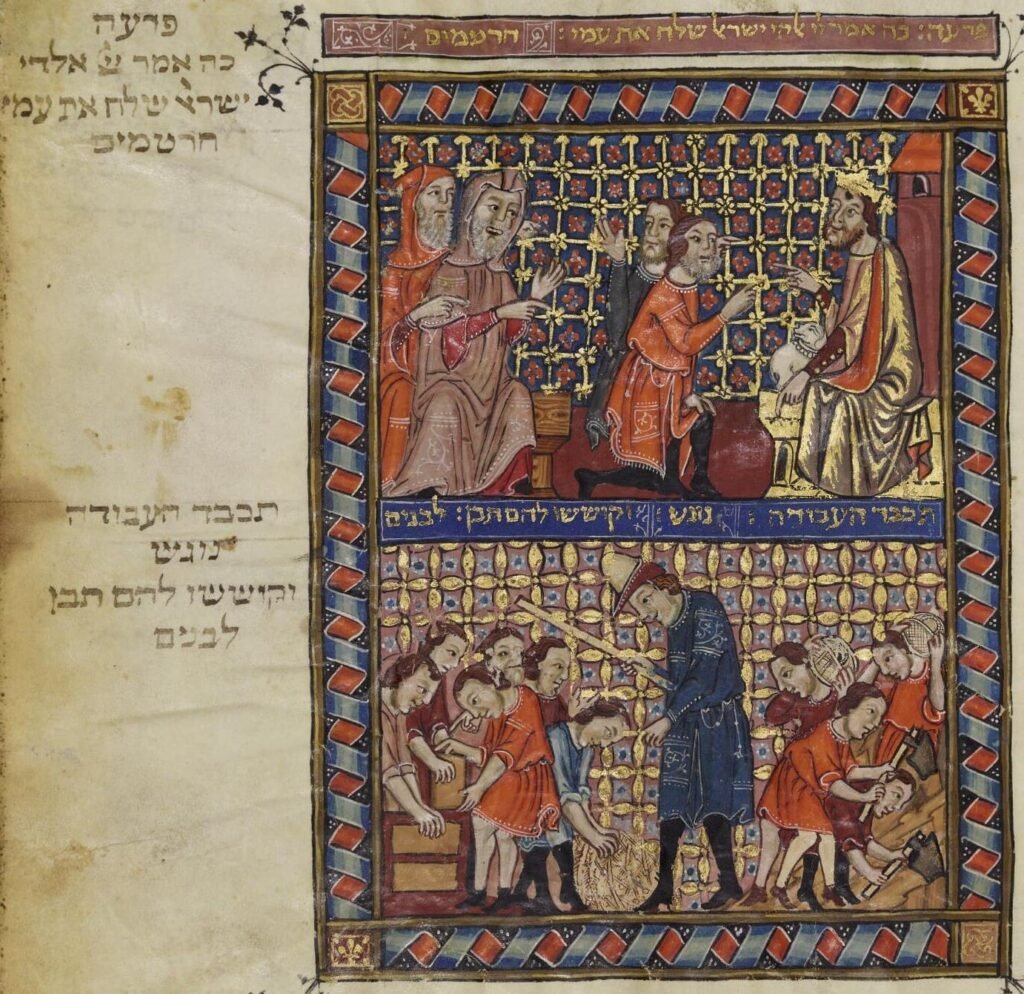 פרעה: כה אמר יי אלהי ישראל שלח את עמי: חרטמים
פרעה
כה אמר יי אלדי
ישראל שלח את עמי
חרטמים
תכבד העבודה: נוגש: וקוששו להם תבן: לבנים
תכבד העבודה
נוגש
וקוששו להם תבן
לבנים